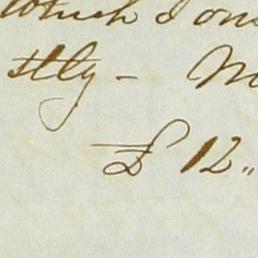 which I on
stly - M
£ 12 "